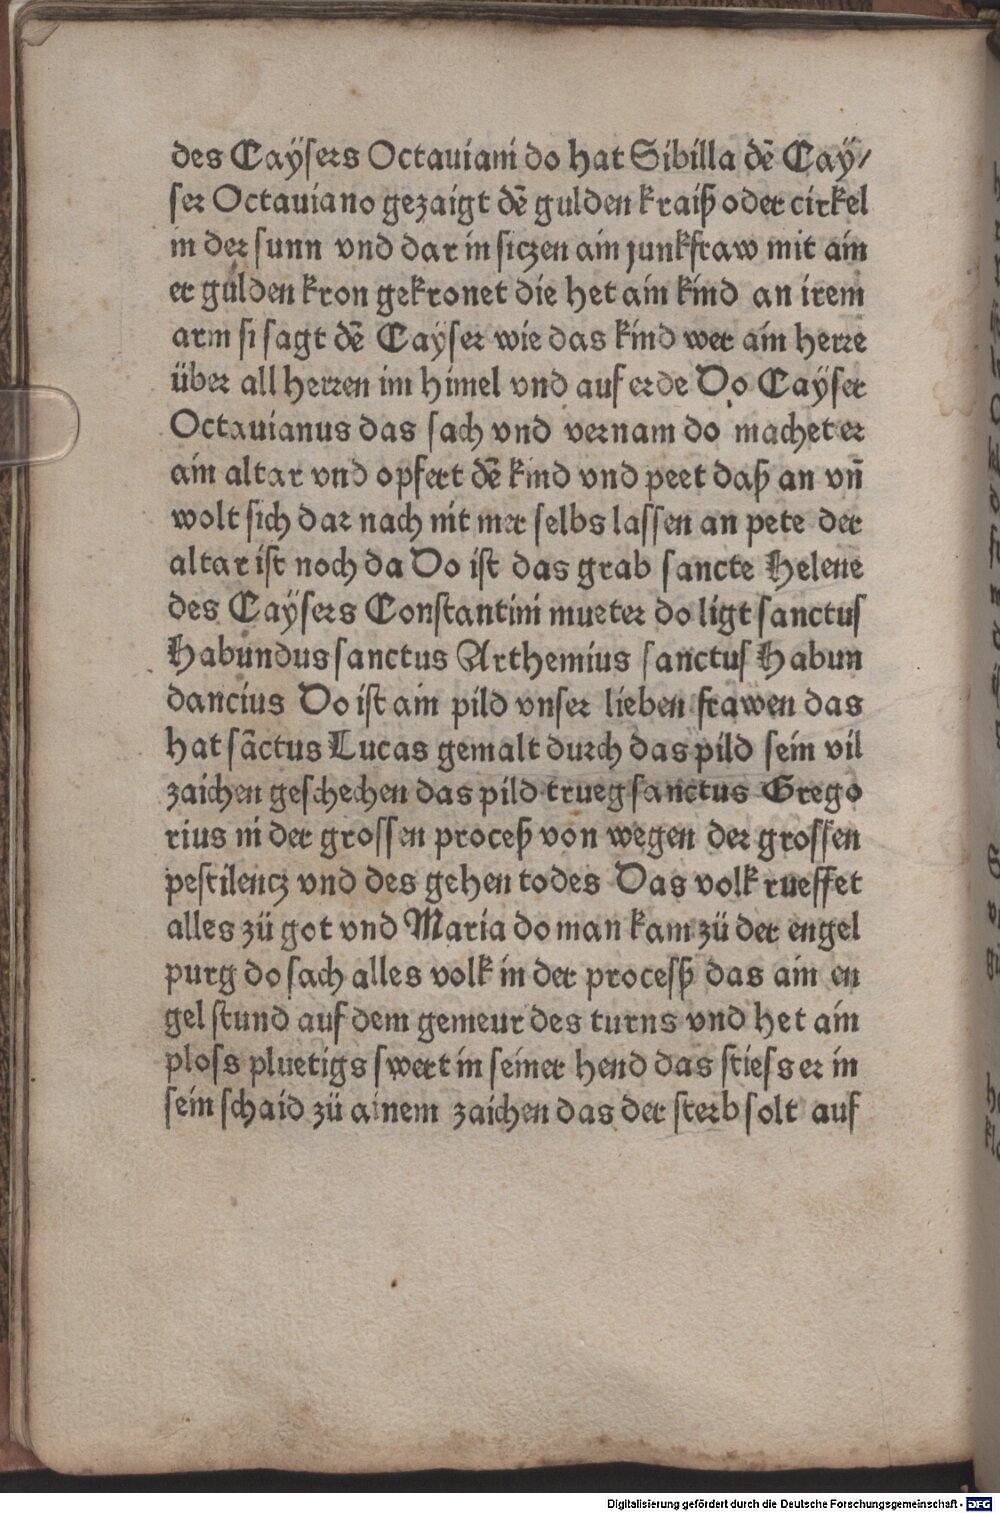 des Caÿſers Octauiani do hat Sibilla dē Caÿ/
ſer Octauiano gezaigt dē gulden kraiß oder cirkel
in der ſunn vnd dar in ſiczen ain junkfraw mit ain
er gulden kron gekronet die het ain kind an irem
arm ſi ſagt dē Caÿſer wie das kind wer ain herre
über all herren im himel vnd auf erde Do Caÿſer
Octauianus das ſach vnd vernam do machet er
ain altar vnd opfert dē kind vnd peet daß an vn̄
wolt ſich dar nach nit mer ſelbs laſſen an pete der
altar iſt noch da Do iſt das grab ſancte Helene
des Caÿſers Conſtantini mueter do ligt ſanctuſ
Habundus ſanctus Arthemius ſanctuſ Habun
dancius Do iſt ain pild vnſer lieben frawen das
hat ſāctus Lucas gemalt durch das pild ſein vil
zaichen geſchechen das pild trueg ſanctus Grego
rius in der groſſen proceß von wegen der groſſen
peſtilencz vnd des gehen todes Das volk rueffet
alles zü got vnd Maria do man kam zü der engel
purg do ſach alles volk in der proceſß das ain en
gel ſtund auf dem gemeur des turns vnd het ain
ploſs pluetigs ſwert in ſeiner hend das ſtieſs er in
ſein ſchaid zü ainem zaichen das der ſterb ſolt auf
Digitalisierung gefördert durch die Deutsche Forschungsgemeinschaft - DFG